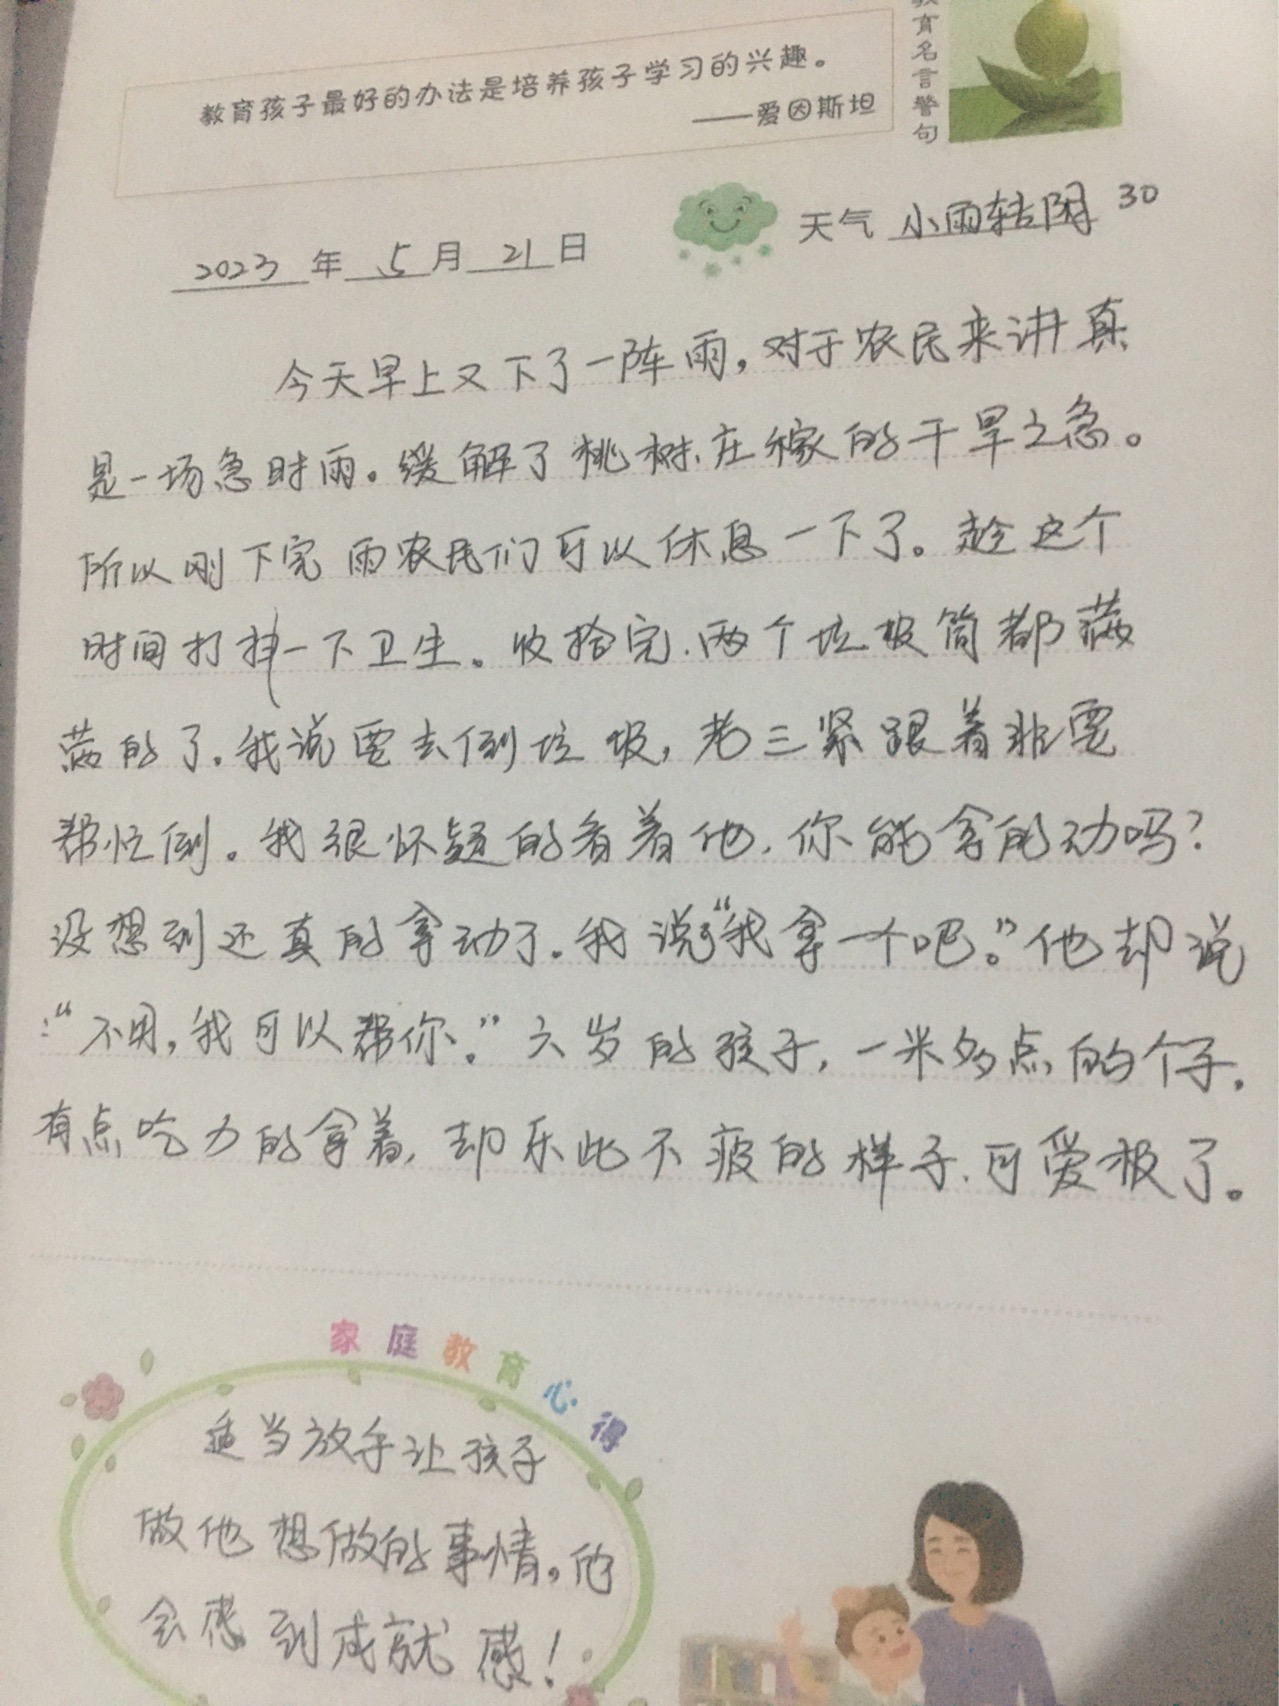 教育孩子最好的办法是培养孩子学习的兴趣。
——爱因斯坦
教育名言警句
2023年5月21日
天气 小雨转阴 30
今天早上又下了一阵雨，对于农民来讲真
是一场急时雨。缓解了桃树、庄稼的干旱之急。
所以刚下完雨农民们可以休息一下了。趁这个
时间打扫一下卫生。收拾完、两个垃圾筒都满
满的了。我说要去倒垃圾，老三紧跟着非要
帮忙倒。我很怀疑的看着他，你能拿的动吗？
没想到还真的拿动了。我说“我拿一个吧。”他却说
：“不用，我可以帮你。”六岁的孩子，一米多点的个子，
有点吃力的拿着，却乐此不疲的样子、可爱极了。
家庭教育心得
适当放手让孩子
做他想做的事情，他
会感到成就感！